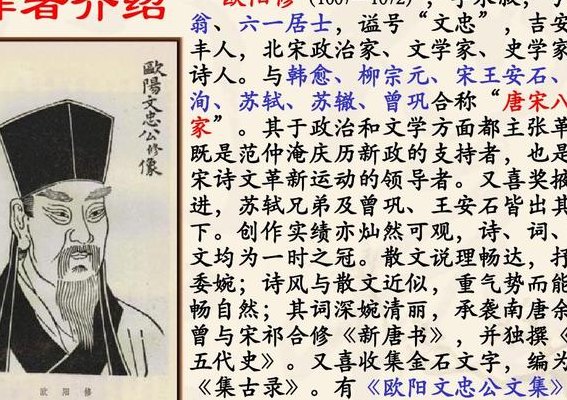 作者介绍
欧阳修（1007—1072），字永叔，号
翁、六一居士，谥号“文忠”，吉安
丰人，北宋政治家、文学家、史学家
诗人。与韩愈、柳宗元、宋王安石、
洵、苏轼、苏辙、曾巩合称“唐宋八
家”。其于政治和文学方面都主张革
既是范仲淹庆历新政的支持者，也是
宋诗文革新运动的领导者。又喜奖掖
进，苏轼兄弟及曾巩、王安石皆出其
下。创作实绩亦灿然可观，诗、词、
文均为一时之冠。散文说理畅达，抒
委婉；诗风与散文近似，重气势而能
畅自然；其词深婉清丽，承袭南唐余
曾与宋祁合修《新唐书》，并独撰《
五代史》。又喜收集金石文字，编为
《集古录》。有《欧阳文忠公文集》
歐陽文忠公修像
欧阳修